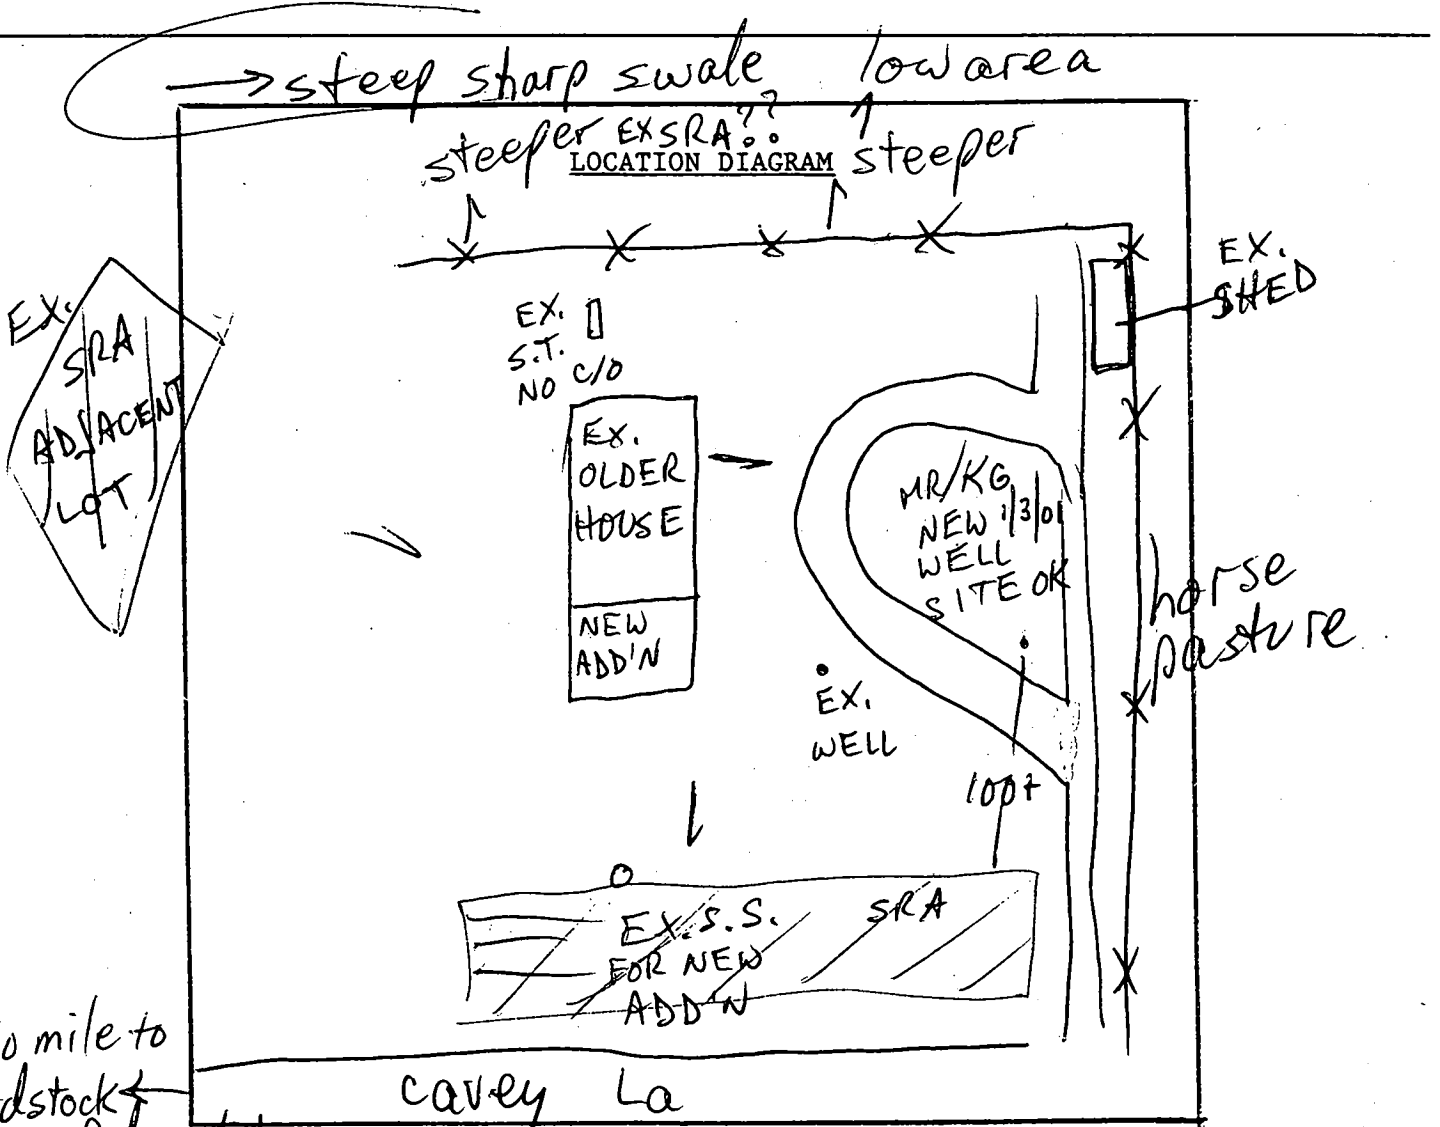 → steep sharp swale low area
steeper EX SRA?? steeper
LOCATION DIAGRAM
EX.
SHED
EX.
SRA
ADJACENT
LOT
EX.
S.T.
NO C/O
EX.
OLDER
HOUSE
NEW
ADD'N
MR/KG
NEW 1/3/01
WELL
SITE OK
horse
pasture
EX.
WELL
100+
EX. S.S. SRA
FOR NEW
ADD'N
mile to
Cavey La